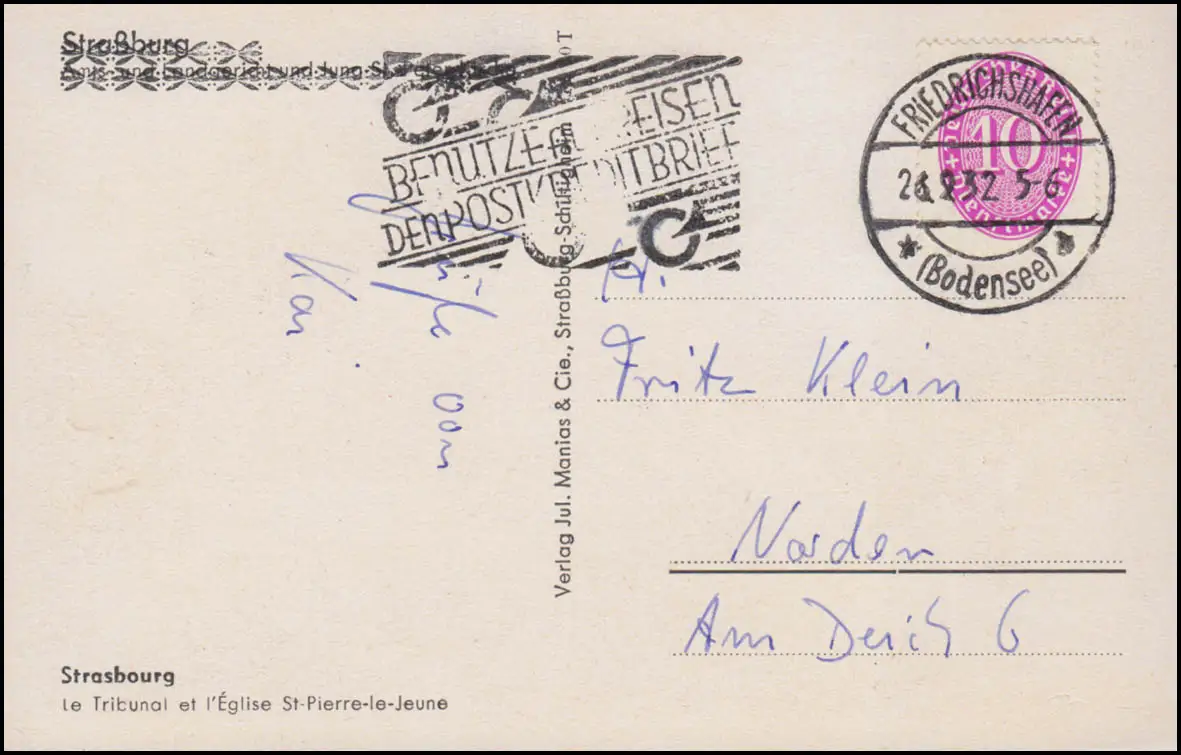 Straßburg
Amts- und Landgericht und Jung-St.
BENUTZE AUF REISEN
DEN POSTKREDITBRIEF
FRIEDRICHSHAFEN
2 .9.32. 5-6
(Bodensee)
10
Dienstmarke
Grüße von
Kai
Verlag Jul. Manias & Cie., Straßburg-Schiltigheim
H.
Fritz Klein
Norden
Am Deich 6
Strasbourg
Le Tribunal et l'Église St-Pierre-le-Jeune